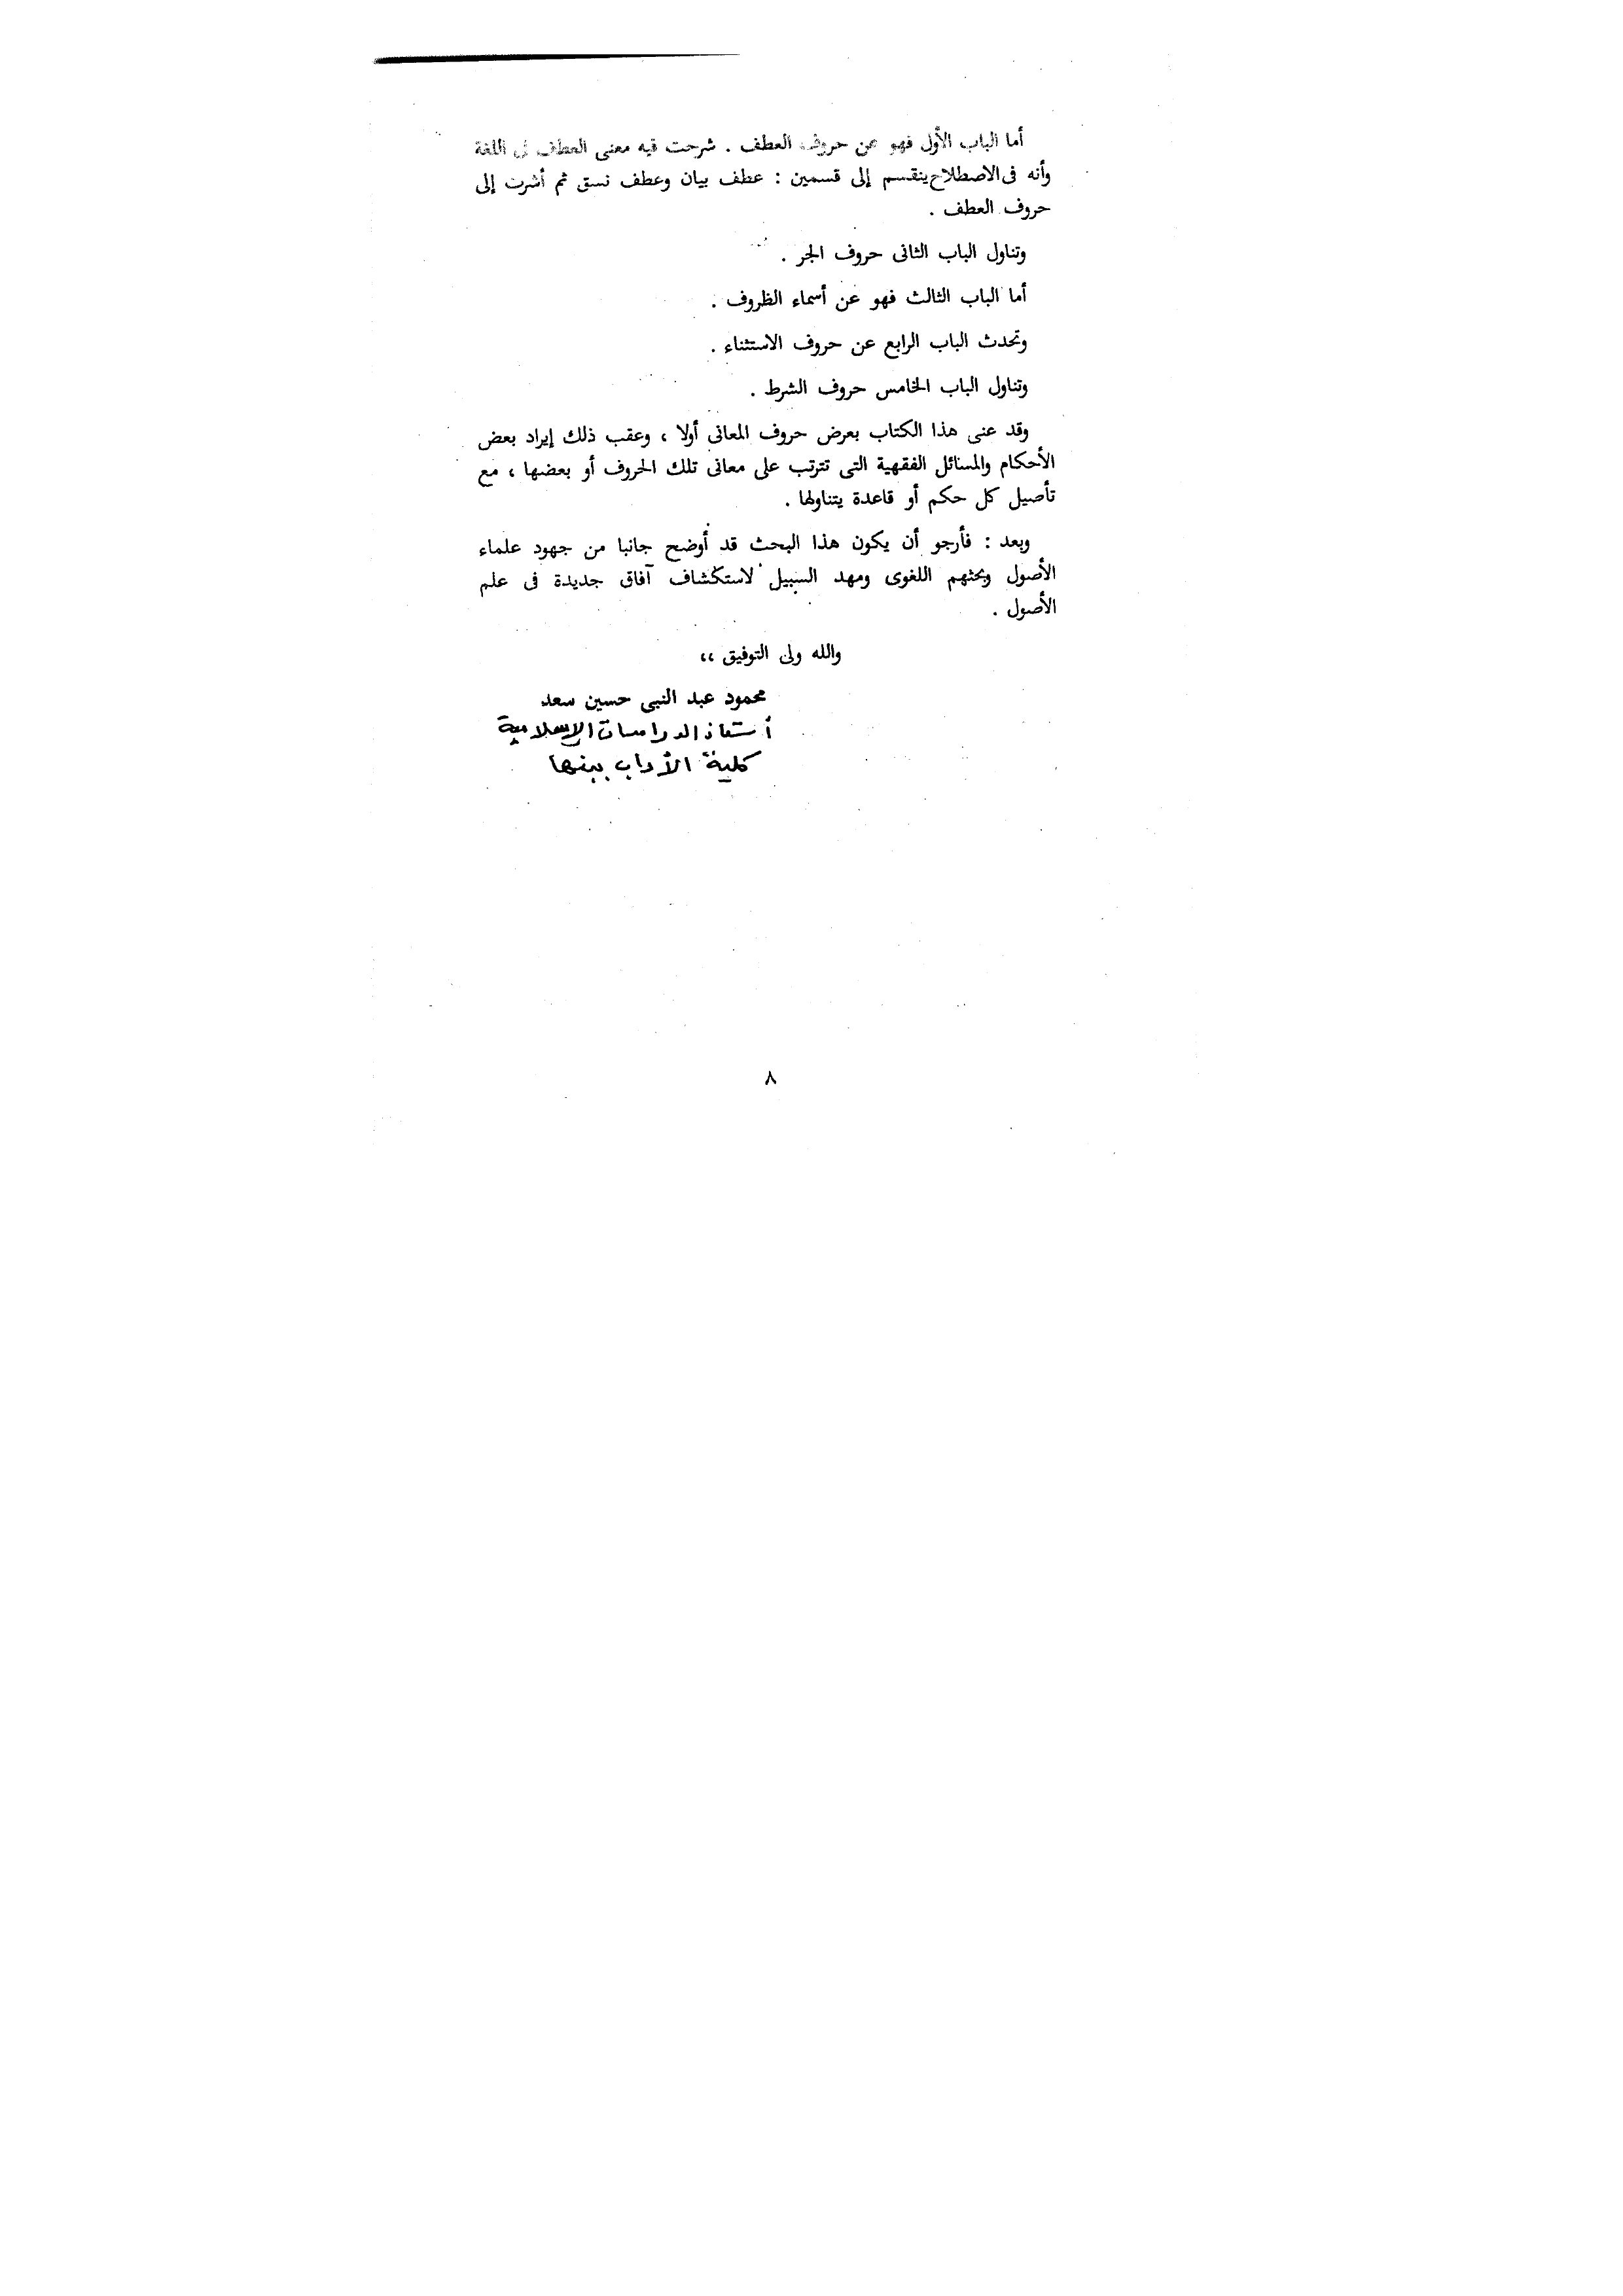 أما الباب الأول فهو عن حروف العطف . شرحت فيه معنى العطف فى اللغة
وأنه فى الاصطلاح ينقسم إلى قسمين : عطف بيان وعطف نسق ثم أشرت إلى
حروف العطف .
وتناول الباب الثانى حروف الجر .
أما الباب الثالث فهو عن أسماء الظروف .
وتحدث الباب الرابع عن حروف الاستثناء .
وتناول الباب الخامس حروف الشرط .
وقد عنى هذا الكتاب بعرض حروف المعانى أولا ، وعقب ذلك إيراد بعض
الأحكام والمسائل الفقهية التى تترتب على معانى تلك الحروف أو بعضها ، مع
تأصيل كل حكم أو قاعدة يتناولها .
وبعد : فأرجو أن يكون هذا البحث قد أوضح جانبا من جهود علماء
الأصول وبحثهم اللغوى ومهد السبيل لاستكشاف آفاق جديدة فى علم
الأصول .
والله ولى التوفيق ،،
محمود عبد النبى حسين سعد
أستاذ الدراسات الإسلامية
كلية الأداب ببنها
٨